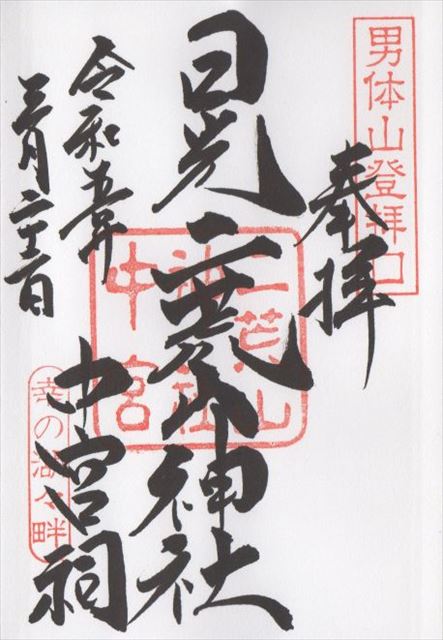 男体山登拝口
奉拝
日光二荒山神社
中宮祠
二荒山
神社
中宮
幸の湖々畔
令和五年
三月二十二日